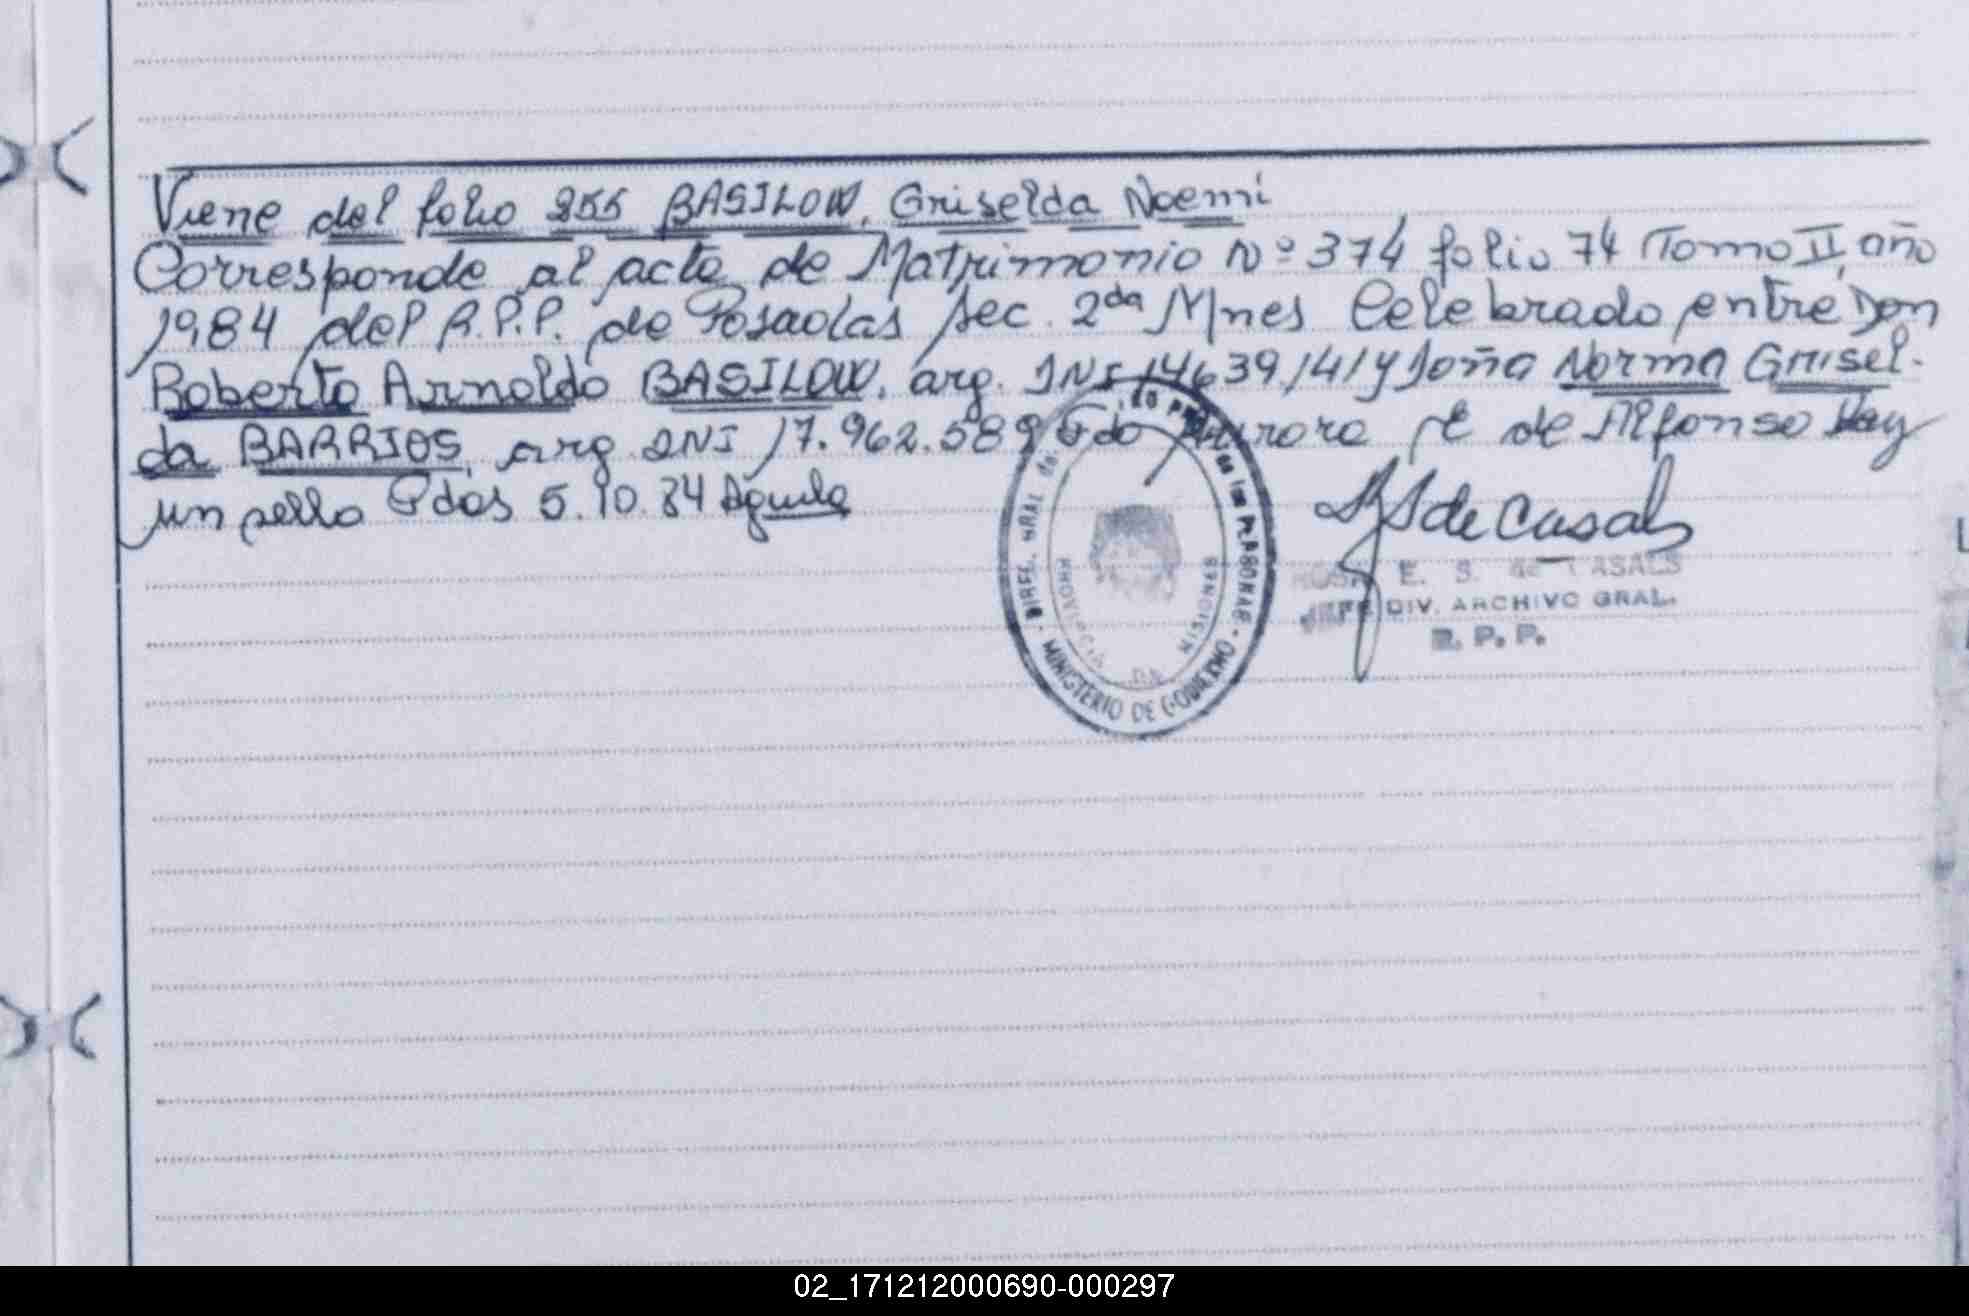 Viene del folio 255 BASILOW, Griselda Noemi
Corresponde al acta de Matrimonio Nº 374 folio 74 Tomo II, año
1984 del R.P.P. de Posadas Sec. 2da Mnes Celebrado entre Don
Roberto Arnoldo BASILOW, arg. DNI 14639.141 y Doña Norma Grisel-
da BARRIOS, arg. DNI 17.962.589 Fdo Aurora E de Alfonso Hay
un sello Pdas 5.10.84 Aguila
DIREC. GRAL del REG PROV. de las PERSONAS
PROVINCIA DE MISIONES
MINISTERIO DE GOBIERNO
de Casals
ROSA E. S. de CASALS
JEFE DIV. ARCHIVO GRAL.
R. P. P.
02_171212000690-000297